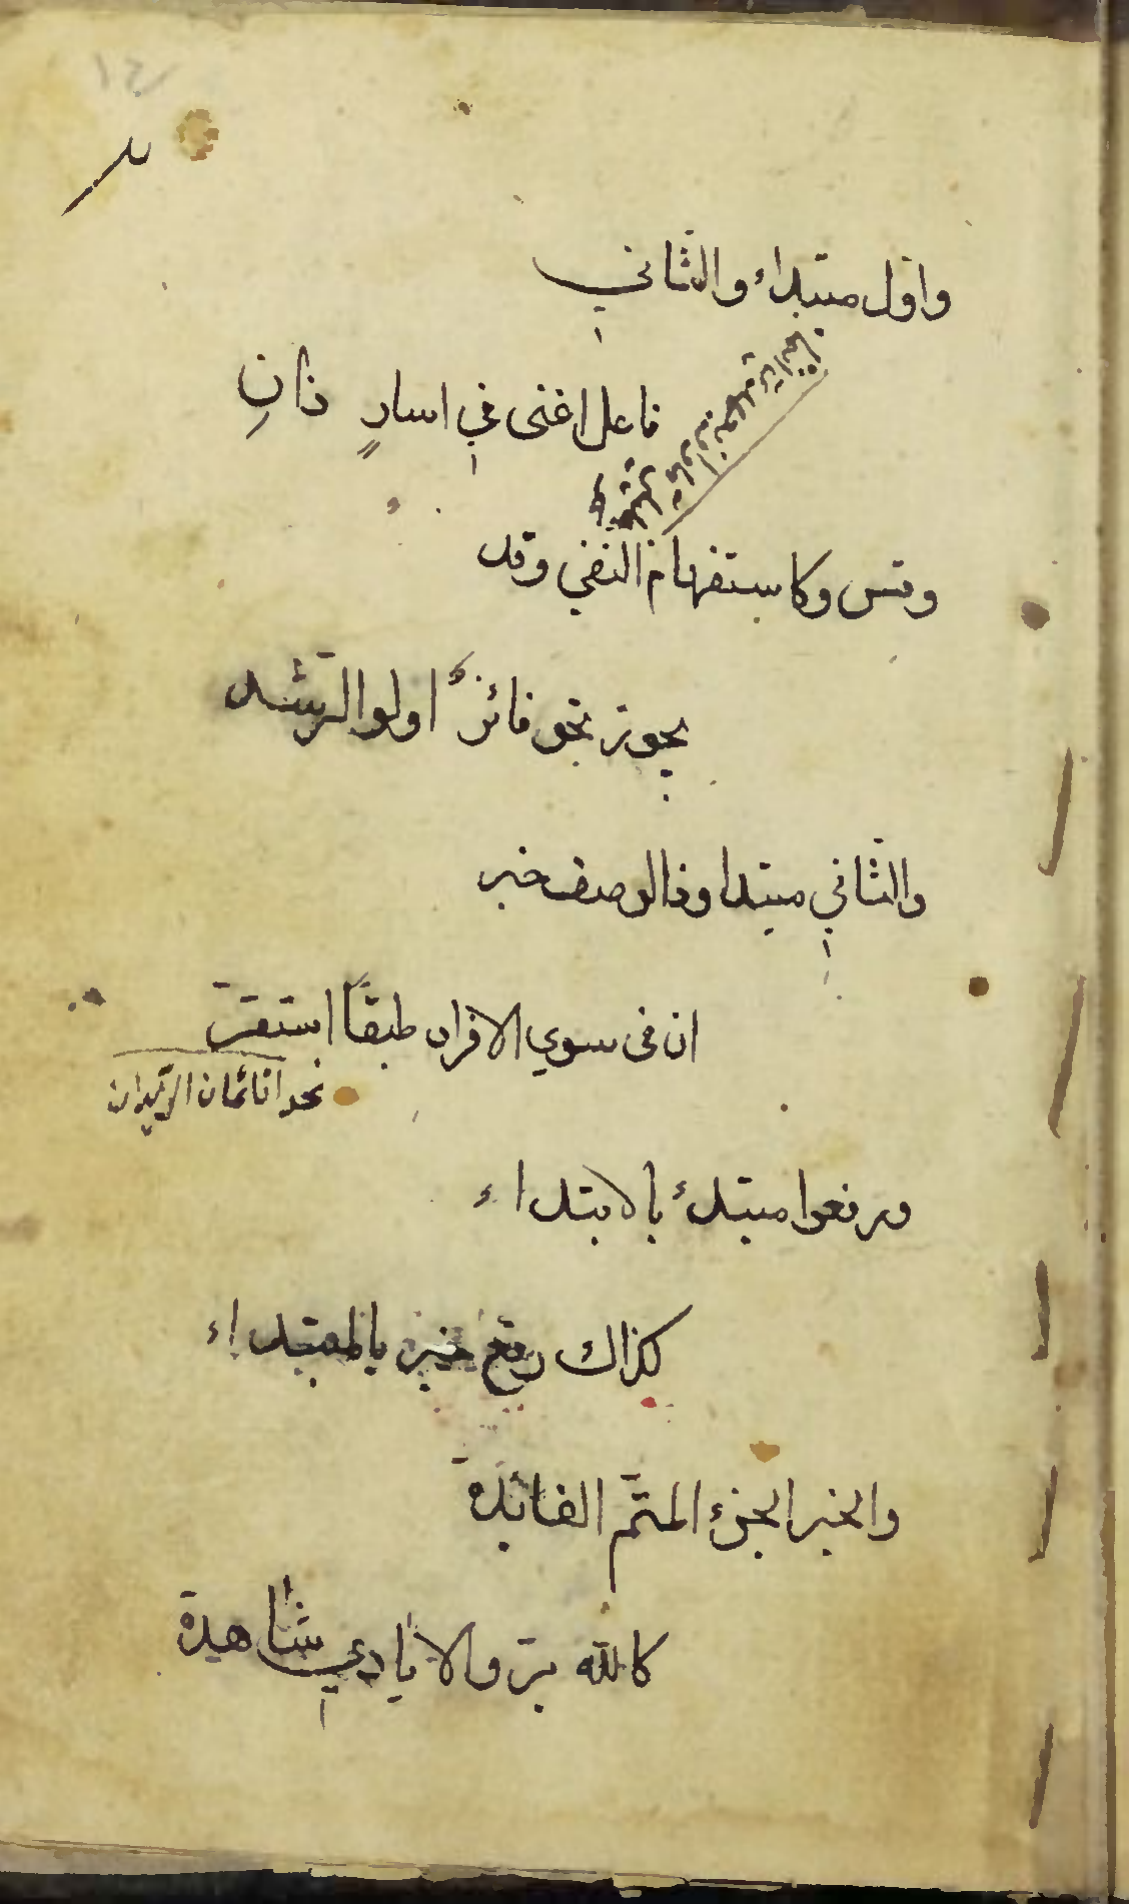 واوّل مبتداء والثّاني
فاعل اغنى في اسارٍ ذانِ
وقس وكاستفهام النفي وقد
يجوز نحو فائزٌ اولوا الرّشد
والثّاني مبتدا وذا الوصف خبر
ان في سوي الافراد طبقًا استقرّ
نحو اقائمان الزّيدان
ورفعوا مبتدأ بالابتداء
كذاك رفع خبر بالمبتداء
والخبر الجزء المتمّ الفائدة
كالله برّ والايادي شاهدة